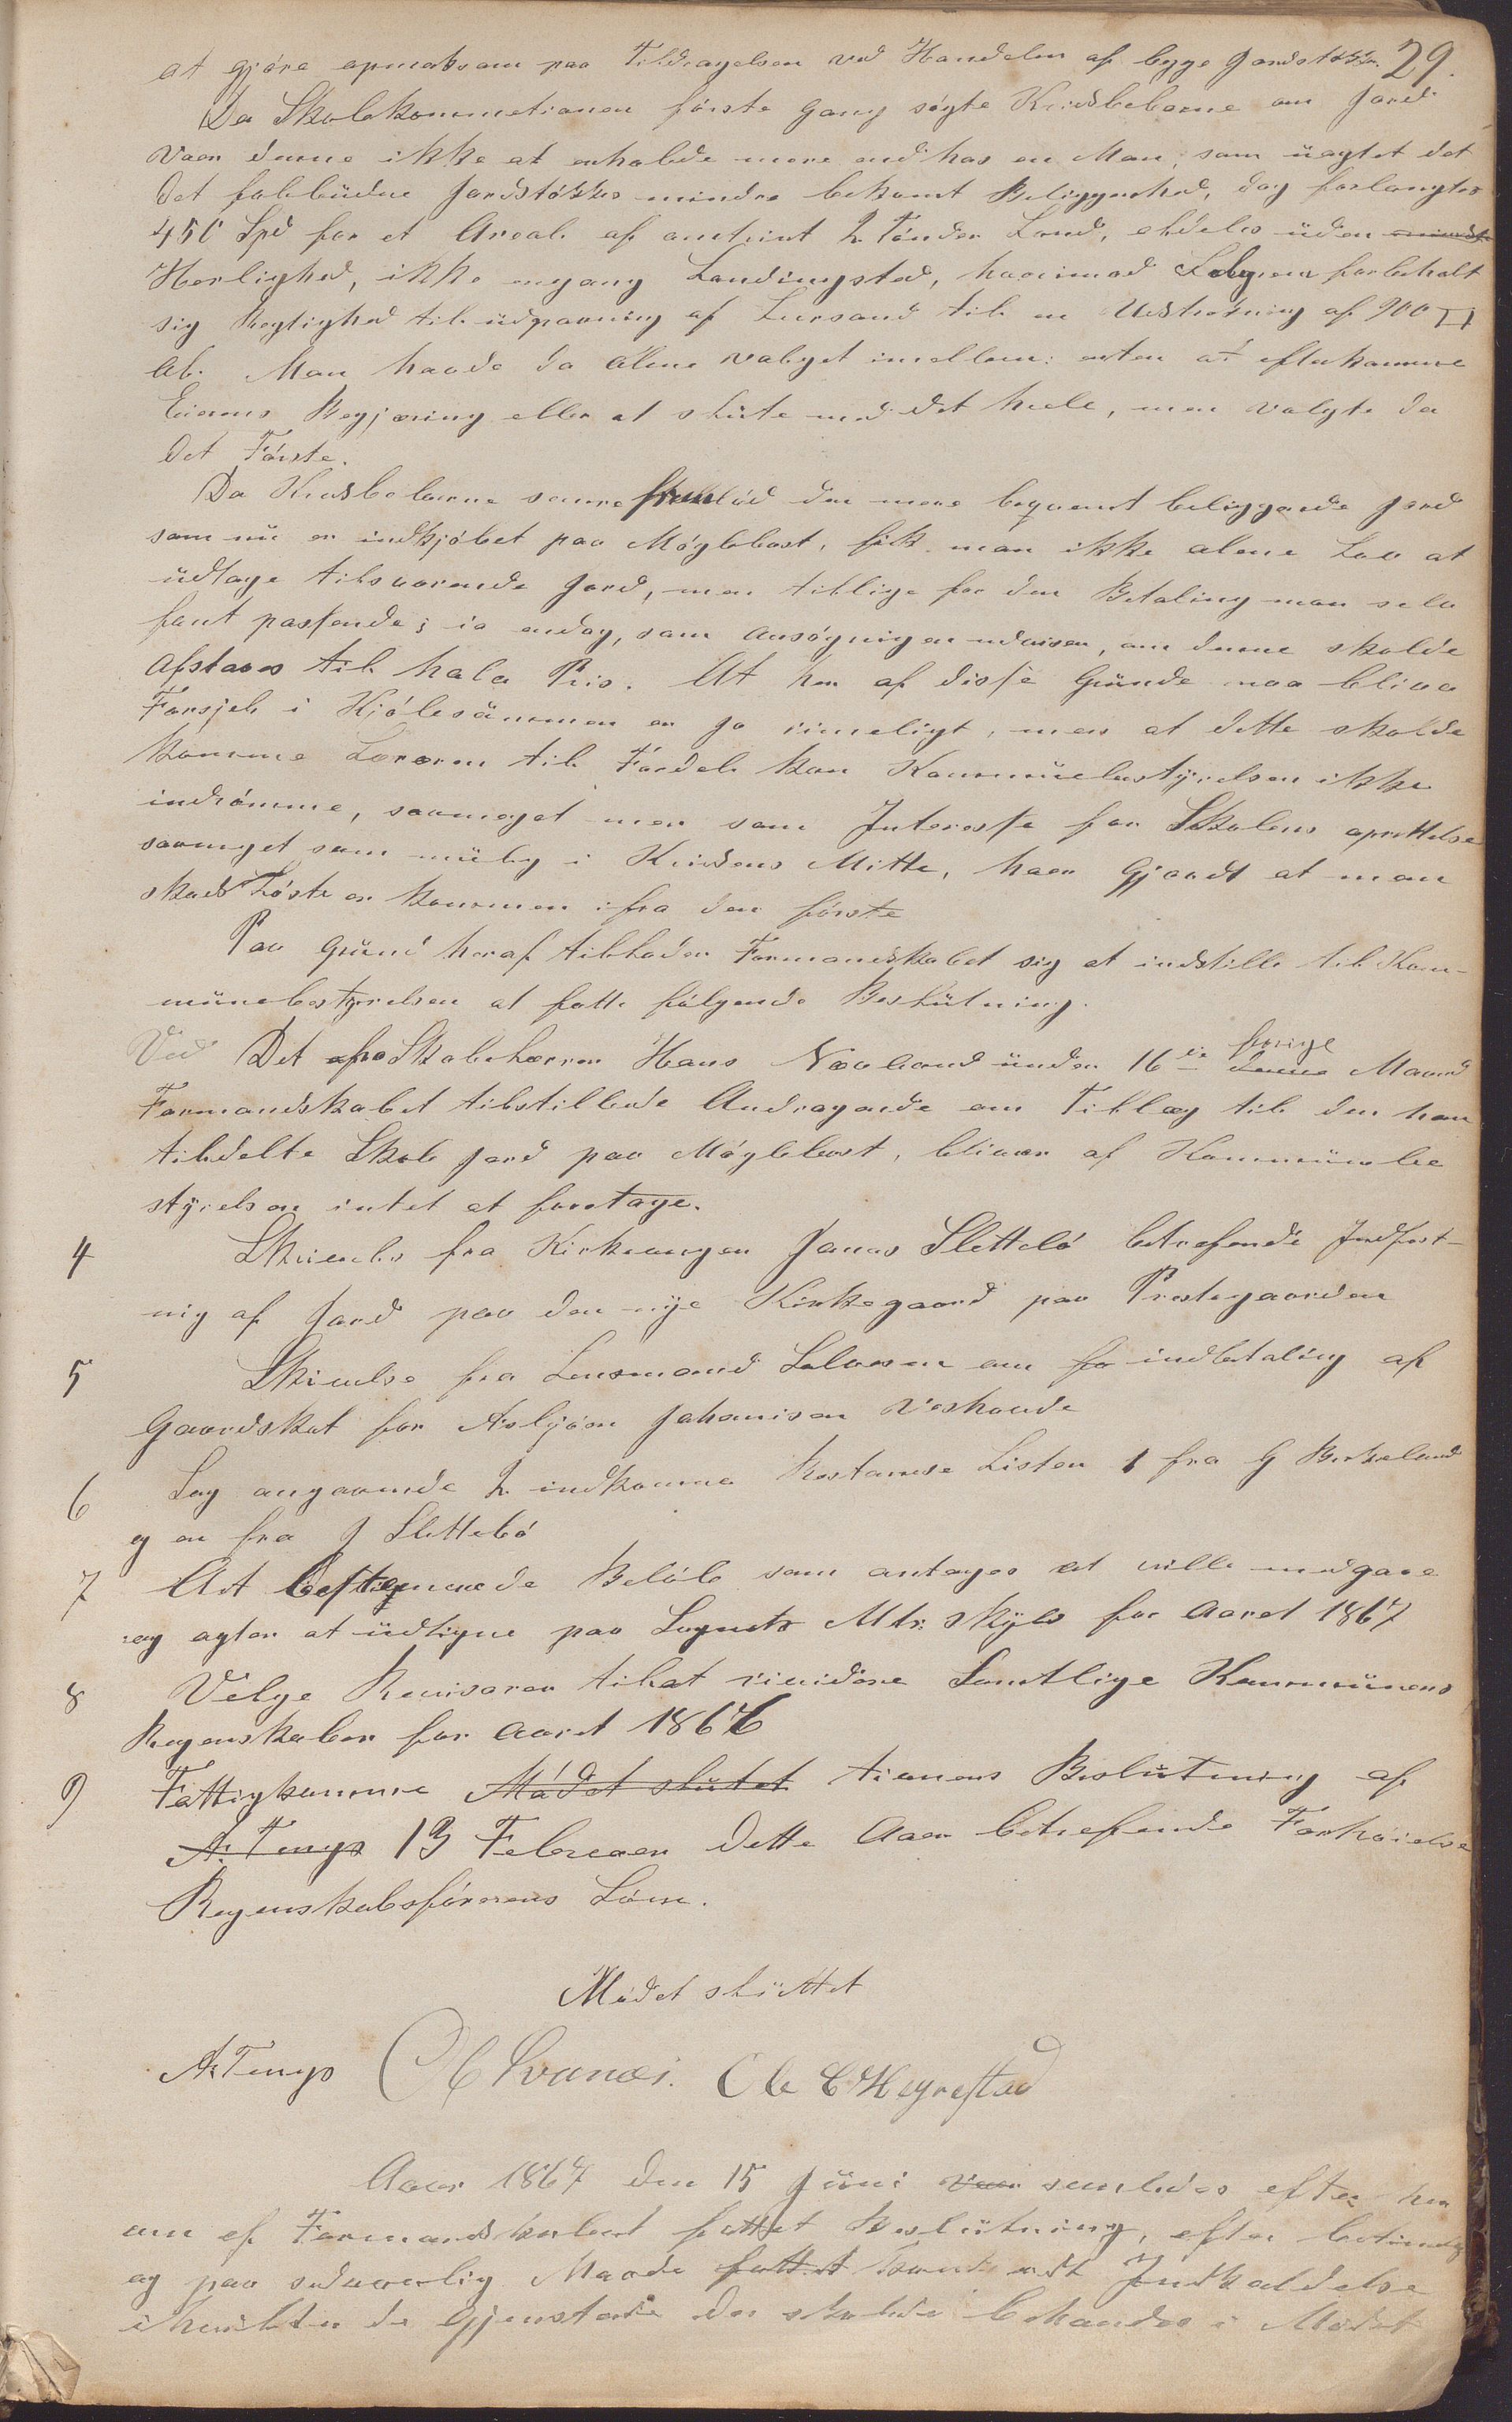 at gjøre opmerksom paa Tildragelsen ved Handelen af begge Jordstøkker. 29.
Da Skolekommetionen første Gang søgte Kredsbeboerne om Jord
vaar denne ikke at erholde mere end hos en Man, som üagtet det
det falbüdne Jordstøkkes mindre bekvemt Beliggenhed, dog forlangtes
450 Spd for et Areal af omtrint 2 Tønder Land, eldeles üden mindste
Herlighed, ikke engang Landingsted, hvorimod Selgeren forbeholt
sig Regtighed til üdgravning af Leersand til en Udstrekning af 900 □
Al. Man havde da alene valget imellem: enten at efterkomme
Eierens Begjæring eller at slüte med det heele, men valgte da
det Første.
Da Kredsbeboerne senere frembød den mere beqvemt beliggende Jord
som nü er indkjøbet paa Møglebost, fik man ikke alene Lov at
üdtage tilsvarende Jord, men tillige for den Betaling man selv
fant passende; ja endog, som ansøgnigen udviser, om denne skulde
afstaaes til halv Pris. At her af disse Gründe maa bliva
Forsjel i Kjøbesümmen er jo rimeligt, men at dette skulde
komme Læreren til Fordel kan Kommünebestyrelsen ikke
indrømme, saameget mer som Interesse for Skolens oprettelse
saameget som mülig i Kredsens Mitte, haver gjordt at man
skads løst er kommen ifra den første
Paa Gründ heraf tillader Formandskabet sig at indstille til Kom-
münebestyrelsen at fatte følgende Beslütning.
Ved Det fra Skolelærrer Hans Nævland ünder 16de forige denne Maaned
Formandskabet tilstillede Andragende om Tillæg til den ham
tildelte Skole Jord paa Møglebost, bliver af Kommünebe
styrelsen intet at foretage.
4 Skrivelse fra Kirkevergen Jonas Slettebø betrefende Indfest-
nig af Jord paa den nye Kirkegaard paa Prestegaarden
5 Skrivelse fra Lensmand Salvesen om fo indbetaling af
Gaardskat for Asbjørn Johanisen Veshovde
6 Sag angaaende 2 indkomne Restanse Lister 1 fra G Birkeland
og en fra J Slettebø
7 At bestemme de Beløb som antages at ville medgaae
og agter at üdligne paa Sognets Mtr. skyld for Aaret 1867
8 Velge Revisorer til at rividere Samtlige Kommünens
Regenskaber for Aaret 1866
9 Fattigkomme Mødet slütet tionens Beslütning af
A. Tengs 13 Febrever dette Aaer betrefende Forhøielse
Regenskabsførerens Løn.
Mødet slüttet
A Tengs O Svanæs. Ole C Hegrestad
Aaer 1867 den 15 Jüni vaer samledes efter her
om af Formandskabet fattet Beslütning, efter betimelig
og paa sedvanlig Maade fattet kundgjordt Indkaldelse
ihvilken de Gjenstande der skulde behandles i Mødet